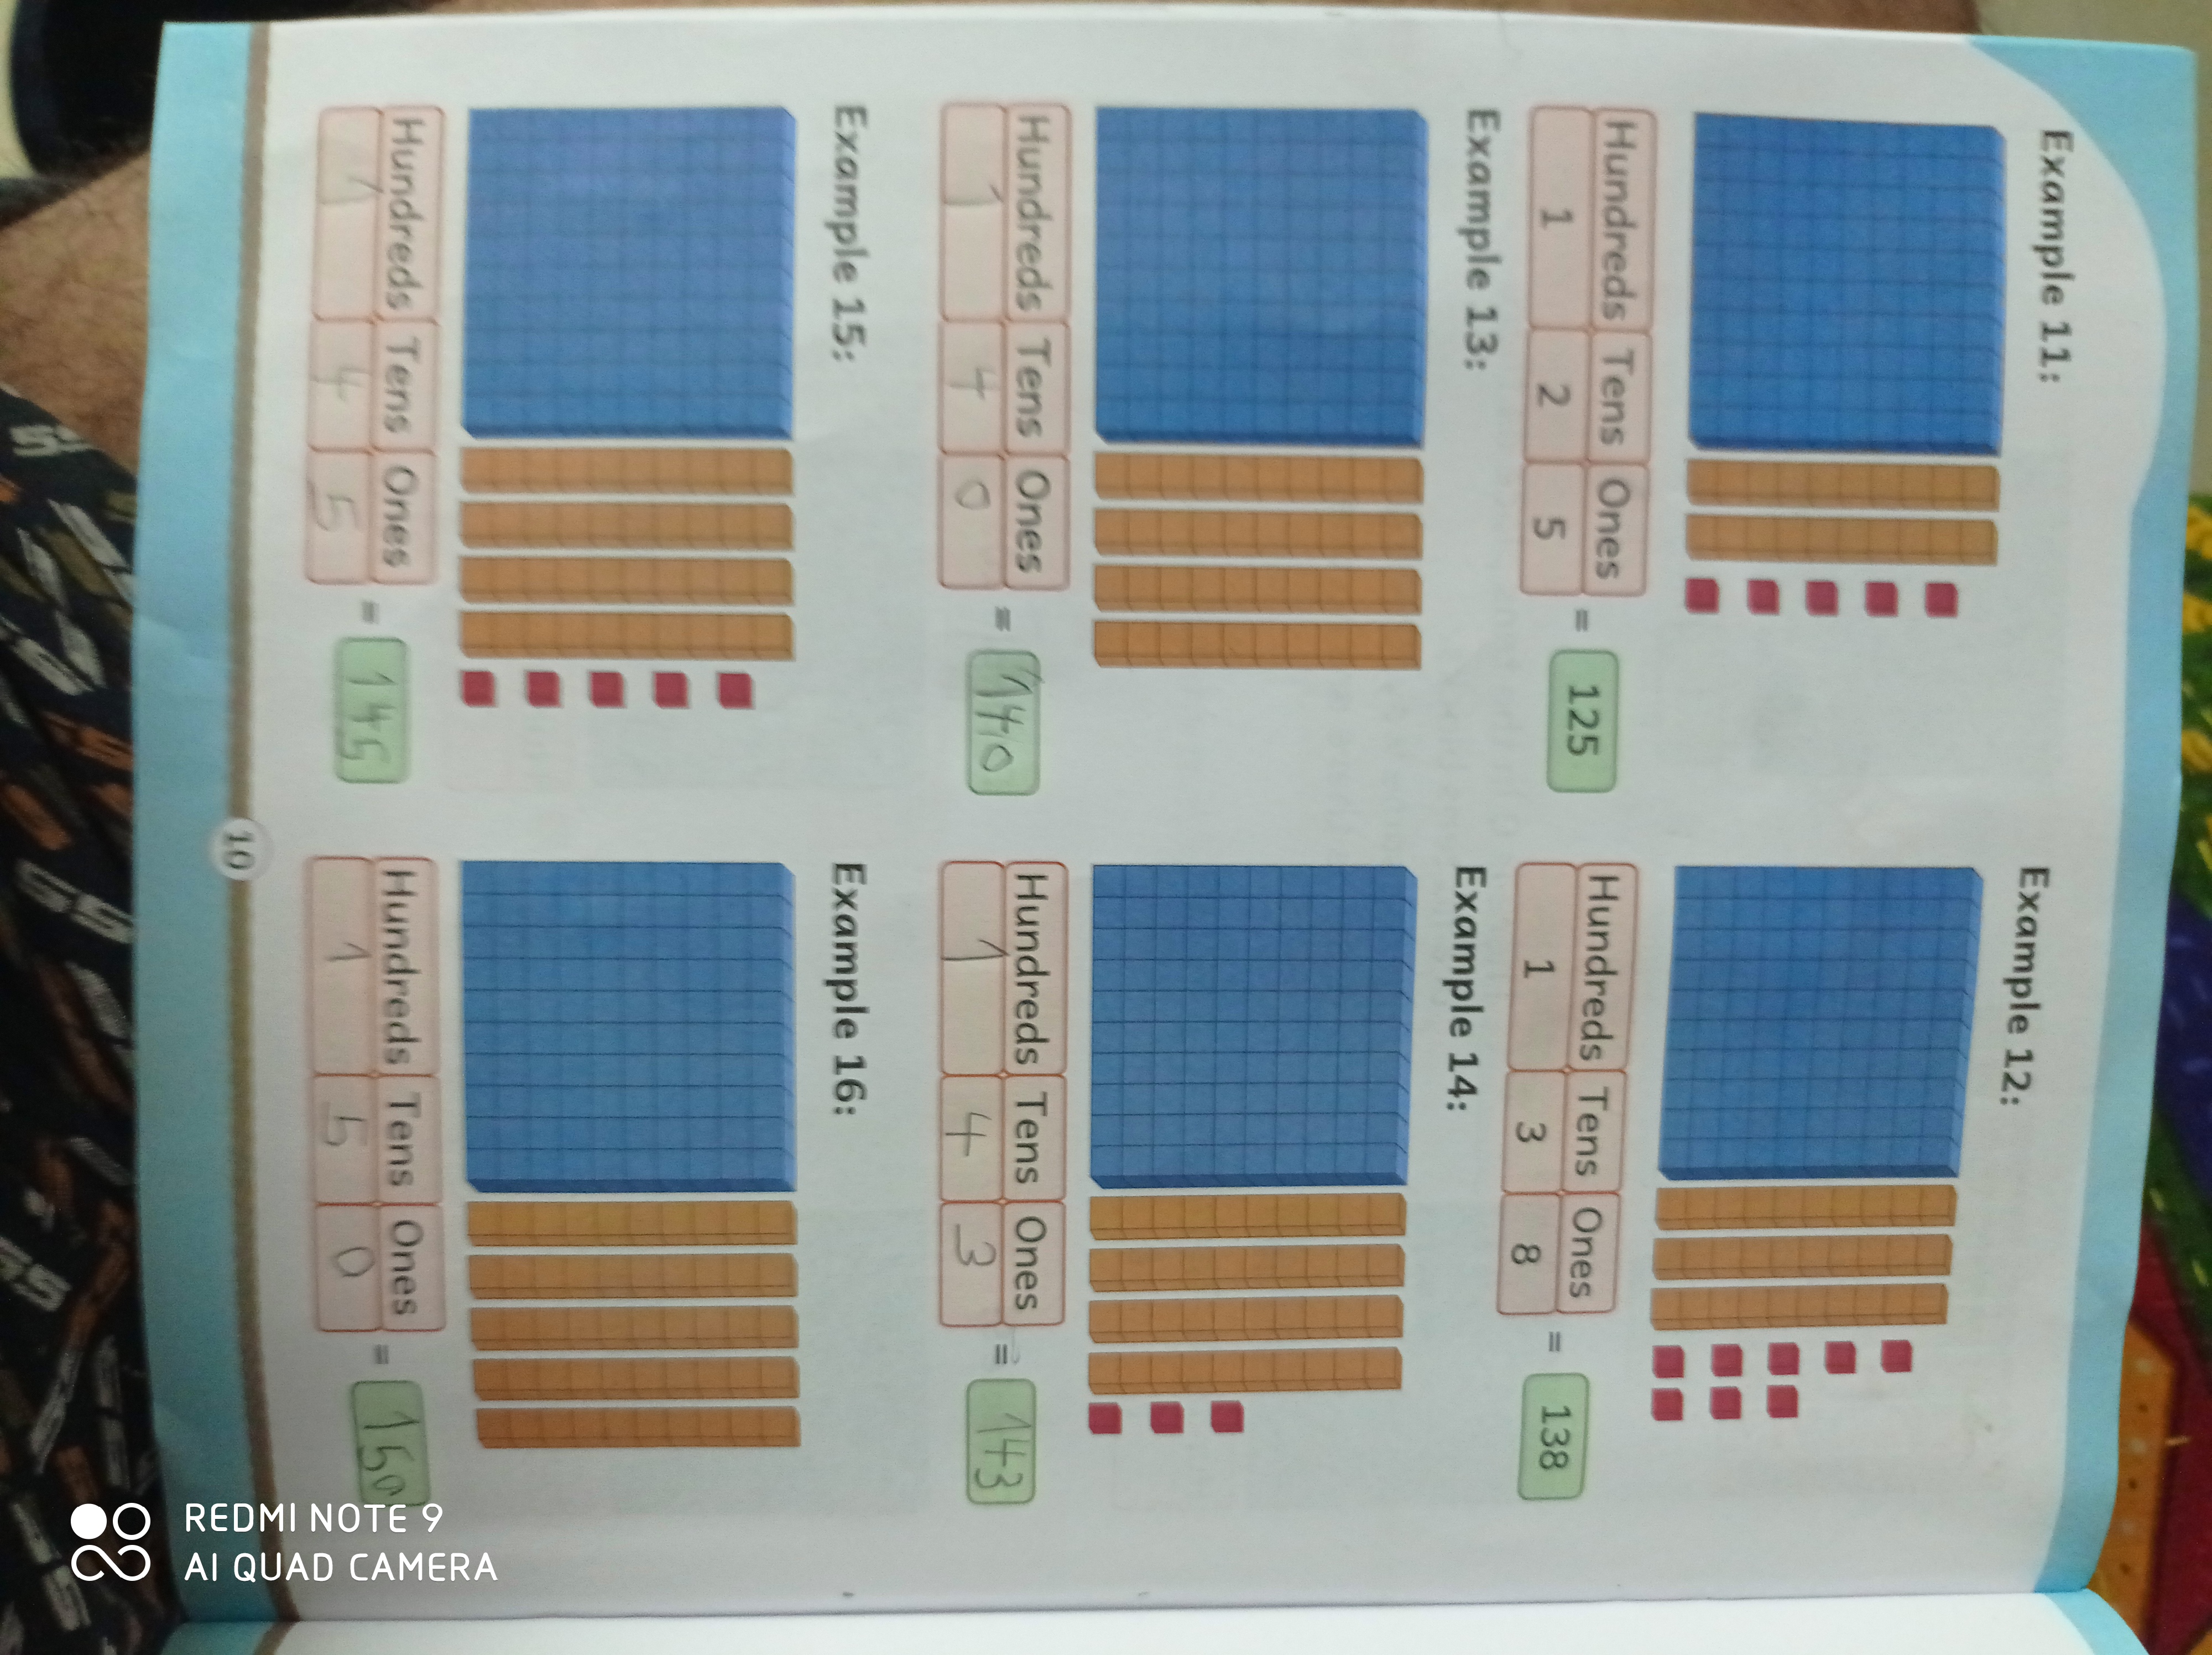 Example 11:
Hundreds Tens Ones
1 2 5 = 125
Example 12:
Hundreds Tens Ones
1 3 8 = 138
Example 13:
Hundreds Tens Ones
1 4 0 = 140
Example 14:
Hundreds Tens Ones
1 4 3 = 143
Example 15:
Hundreds Tens Ones
1 4 5 = 145
Example 16:
Hundreds Tens Ones
1 5 0 = 150
10
REDMI NOTE 9
AI QUAD CAMERA